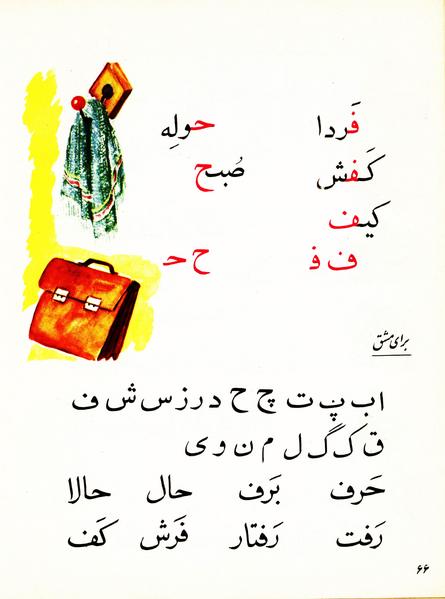 فَردا حولِه
کَفش صُبح
کیف
ف ف‍ ح ح‍
برای مشق
ا ب پ ت چ ح د ر ز س ش ف
ق ک گ ل م ن و ی
حَرف بَرف حال حالا
رَفت رَفتار فَرش کَف
۶۶